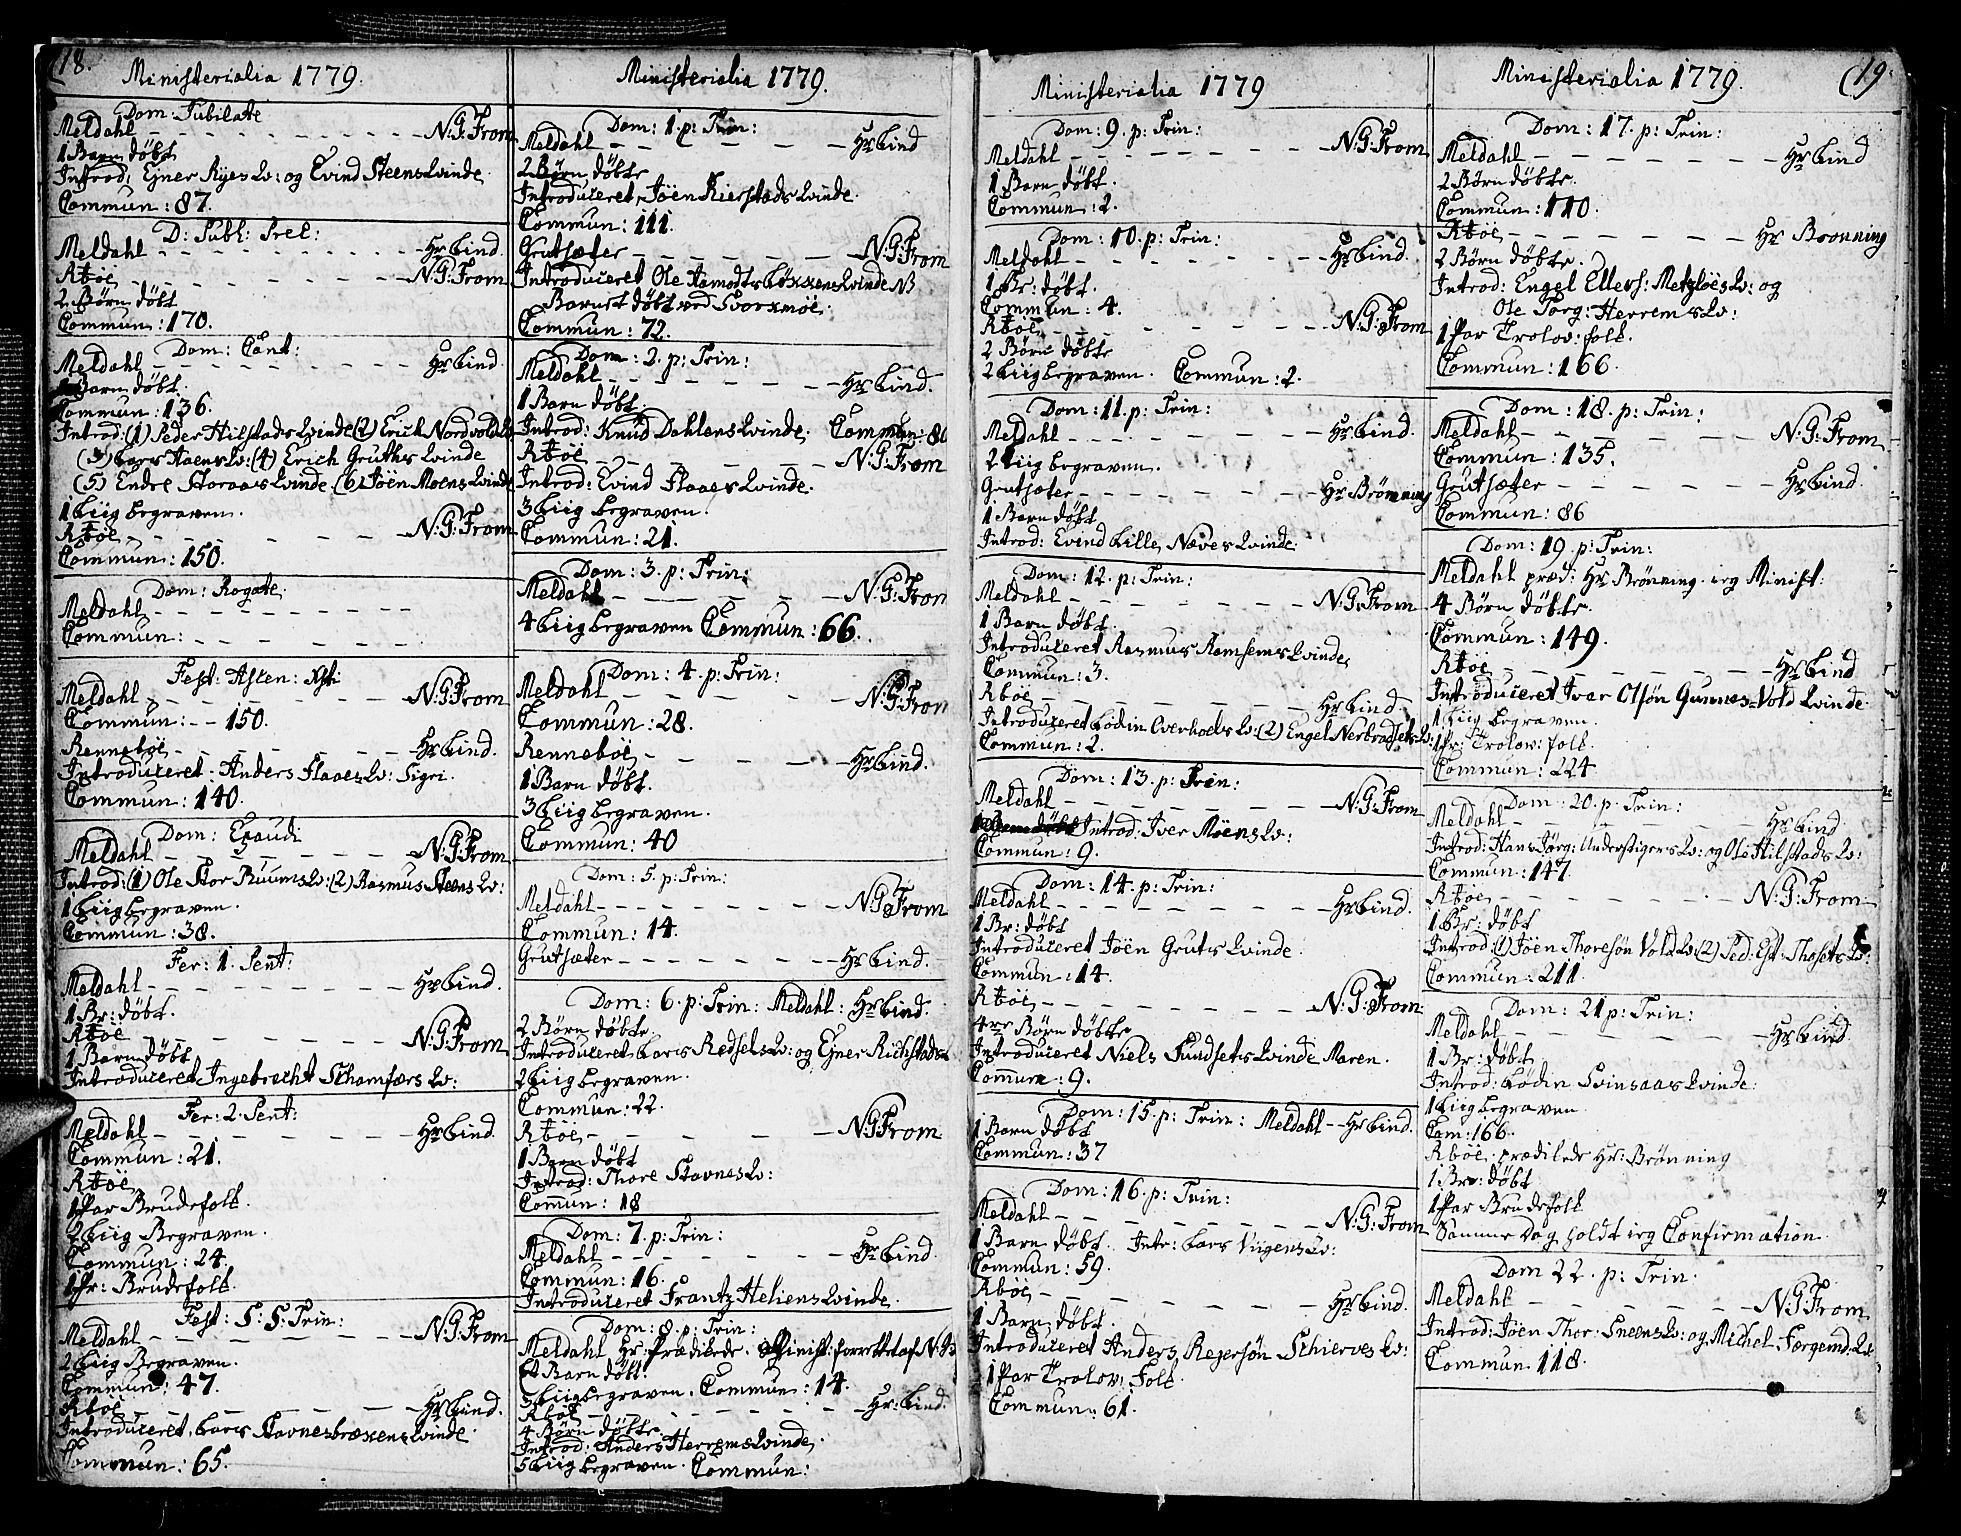 18.
Ministerialia 1779.
Dom: Jubilate
Meldahl - - - N:G:From
1 Barn døbt
Introd: Ejner Ryes Qv: og Evind Steens Qvinde.
Commun: 87.
D: Jubl: Prel:
Meldahl - - - Hr Lind.
Rbøe - - - N:G:From
2 Børn døbt
Commun: 170.
Dom: Cant:
Meldahl - - - Hr Lind
Barn døbt.
Commun: 136.
Introd: (1) Peder Hilstads Qvinde (2) Erich Nordvolds Qv
(3) Lars Haens Qv: (4) Erich Gruths Qvinde
(5) Endre Storaas Qvinde (6) Jöen Moens Qvinde
1 Liig begraven.
Rbøe - - - N:G:From
Commun: 150.
Dom: Rogate.
Meldahl - - -
Commun: - - -
Fest: Ascen: Xsti
Meldahl - - - N:G:From
Commun: - - 150.
Rennebøe - - - Hr Lind.
Introduceret: Anders Flaaes Qv: Sigri.
Commun: 140.
Dom: Exaudi
Meldahl - - - N:G:From
Introd: (1) Ole Stor Ruums Qv: (2) Rasmus Steens Qv:
1 Liig begraven.
Commun: 38.
Fer: 1. Pent:
Meldahl - - - Hr Lind.
1 Br: døbt.
Rbøe - - - N:G:From
1 Barn døbt
Introduceret Ingebrecht Schamfærs Qv:
Fer: 2. Pent:
Meldahl - - - Hr Lind.
Commun: 21.
Rbøe
1 Par Brudefolk.
2 Liig Begraven.
Commun: 24.
1 Pr: Brudefolk.
Fest: S: S: Trin:
Meldahl - - - N:G:From
2 Liig Begraven.
Commun: 47.
Rbøe - - - Hr Lind.
Introduceret Lars Stavnesbrækens Qvinde
Commun: 65.
Ministerialia 1779.
Dom: 1. p: Trin:
Meldahl - - - Hr Lind
2 Børn døbte
Introduceret Jöen Kierstads Qvinde.
Commun: 111.
Grutsæter - - - N:G:From
Introduceret Ole Aamodts Løkkens Qvinde NB
Barnet døbt ved Svorkmøe.
Commun: 72.
Dom: 2. p: Trin:
Meldahl - - - Hr Lind.
1 Barn døbt.
Introd: Knud Dahlens Qvinde. Commun: 80
Rbøe - - - N:G:From
Introd: Evind Flaaes Qvinde.
3 Liig begraven.
Commun: 21.
Dom: 3. p: Trin:
Meldahl - - - N:G:From
4 Liig begraven Commun: 66.
Dom: 4. p: Trin:
Meldahl - - - N:G:From
Commun: 28.
Rennebøe - - - Hr Lind.
1 Barn døbt.
3 Liig begraven.
Commun: 40
Dom: 5. p: Trin:
Meldahl - - - N:G:From
Commun: 14.
Grutsæter - - - Hr Lind.
Dom: 6. p: Trin: Meldahl: Hr Lind.
2 Børn døbte.
Introduceret Lars Redsets Qv: og Ejner Richstads
2 Liig begraven.
Commun: 22.
Rbøe - - - N:G:From
1 Barn døbt
Introd: Thore Stavnes Qv:
Comun: 18
Dom: 7. p: Trin:
Meldahl - - - Hr Lind.
Commun: 16.
Introduceret Frantz Heliens Qvinde.
Dom: 8. p: Trin:
Meldahl Hr Prædikede. Minist: forrettet af N:G
Barn døbt.
5 Liig begraven. Commun: 14.
Rbøe - - - Hr: Lind.
4 Børn døbte.
Introd: Anders Herrems Qvinde.
5 Liig begraven. Commun:
Ministerialia 1779
Dom: 9. p: Trin:
Meldahl - - - N:G:From
1 Barn døbt.
Commun: 2.
Dom: 10. p: Trin:
Meldahl - - - Hr Lind.
1 Br: døbt.
Commun: 4.
Rbøe - - - N:G:From
2 Børn døbte
2 Liig begraven. Commun: 2.
Dom: 11. p: Trin:
Meldahl - - - Hr Lind.
2 Liig begraven.
Grutsæter - - - Hr Brønning
1 Barn døbt
Introd: Evind Lille Næves Qvinde.
Dom: 12. p: Trin:
Meldahl - - - N:G:From
1 Barn døbt.
Introduceret Rasmus Ramsems Qvinde.
Commun: 3.
Rbøe - - - Hr Lind.
Introduceret Lodin Overhoels Qv: (2) Engel Nerbradsets Qv:
Commun: 2.
Dom: 13. p: Trin:
Meldahl - - - N:G:From
Introd: Iver Möens Qv:
Commun: 9.
Dom: 14. p: Trin:
Meldahl - - - Hr Lind.
1 Br: døbt
Introduceret Jöen Gruts Qvinde
Commun: 14.
Rbøe - - - N:G:From
4re Børn døbte
Introduceret Niels Sundsets Qvinde Maren.
Commun: 9.
Dom: 15. p: Trin: Meldahl - - Hr Lind.
1 Barn døbt
Commun: 37
Dom: 16. p: Trin:
Meldahl - - - N:G:From
1 Barn døbt. Intr: Lars Viigens Qv:
Commun: 59.
Rbøe - - - Hr Lind.
1 Barn døbt.
Introduceret Anders Rejersøn Schierves Qv:
1 Par Trolov: Folk.
Commun: 61.
19.
Ministerialia 1779.
Dom: 17. p: Trin:
Meldahl - - - Hr Lind
2 Børn døbte.
Commun: 110.
Rbøe - - - Hr Brønning
2 Børn døbte.
Introd: Engel Ellefs: Metzløes Qv: og
Ole Torg: Herrems Qv:
1 Par Trolov: folk.
Commun: 166.
Dom: 18. p: Trin:
Meldahl - - - N:G:From
Commun: 135.
Grutsæter - - - Hr Lind.
Commun: 86
Dom: 19. p: Trin:
Meldahl præd: Hr Brønning. ieg Minist:
4 Børn døbte.
Commun: 149.
Rbøe - - - Hr Lind
Introduceret Ivar Olsøn Gunnes-Vold Qvinde.
1 Liig begraven.
1 Pr: Trolov: folk.
Commun: 224
Dom: 20. p: Trin:
Meldahl - - - Hr Lind
Introd: Hans Jörg: Understigers Qv: og Ole Hilstads Qv:
Commun: 147.
Rbøe - - - N:G:From
1 Br: døbt
Introd: (1) Jöen Thoresøn Volds Qv: (2) Ped: Est: Thosets Qv:
Commun: 211.
Dom: 21 p: Trin:
Meldahl - - - Hr Lind.
1 Br: døbt
Introd: Lodin Svinsaas Qvinde.
1 Liig begraven.
Com: 166.
Rbøe prædikede Hr: Brønning
1 Br: døbt
1 Par Brudefolk
Samme Dag holdt ieg Confirmation.
Dom 22. p: Trin:
Meldahl - - - N:G:From
Introd: Jöen Thor: Sneens Qv: og Michel Færgemd: Qv:
Commun 118.